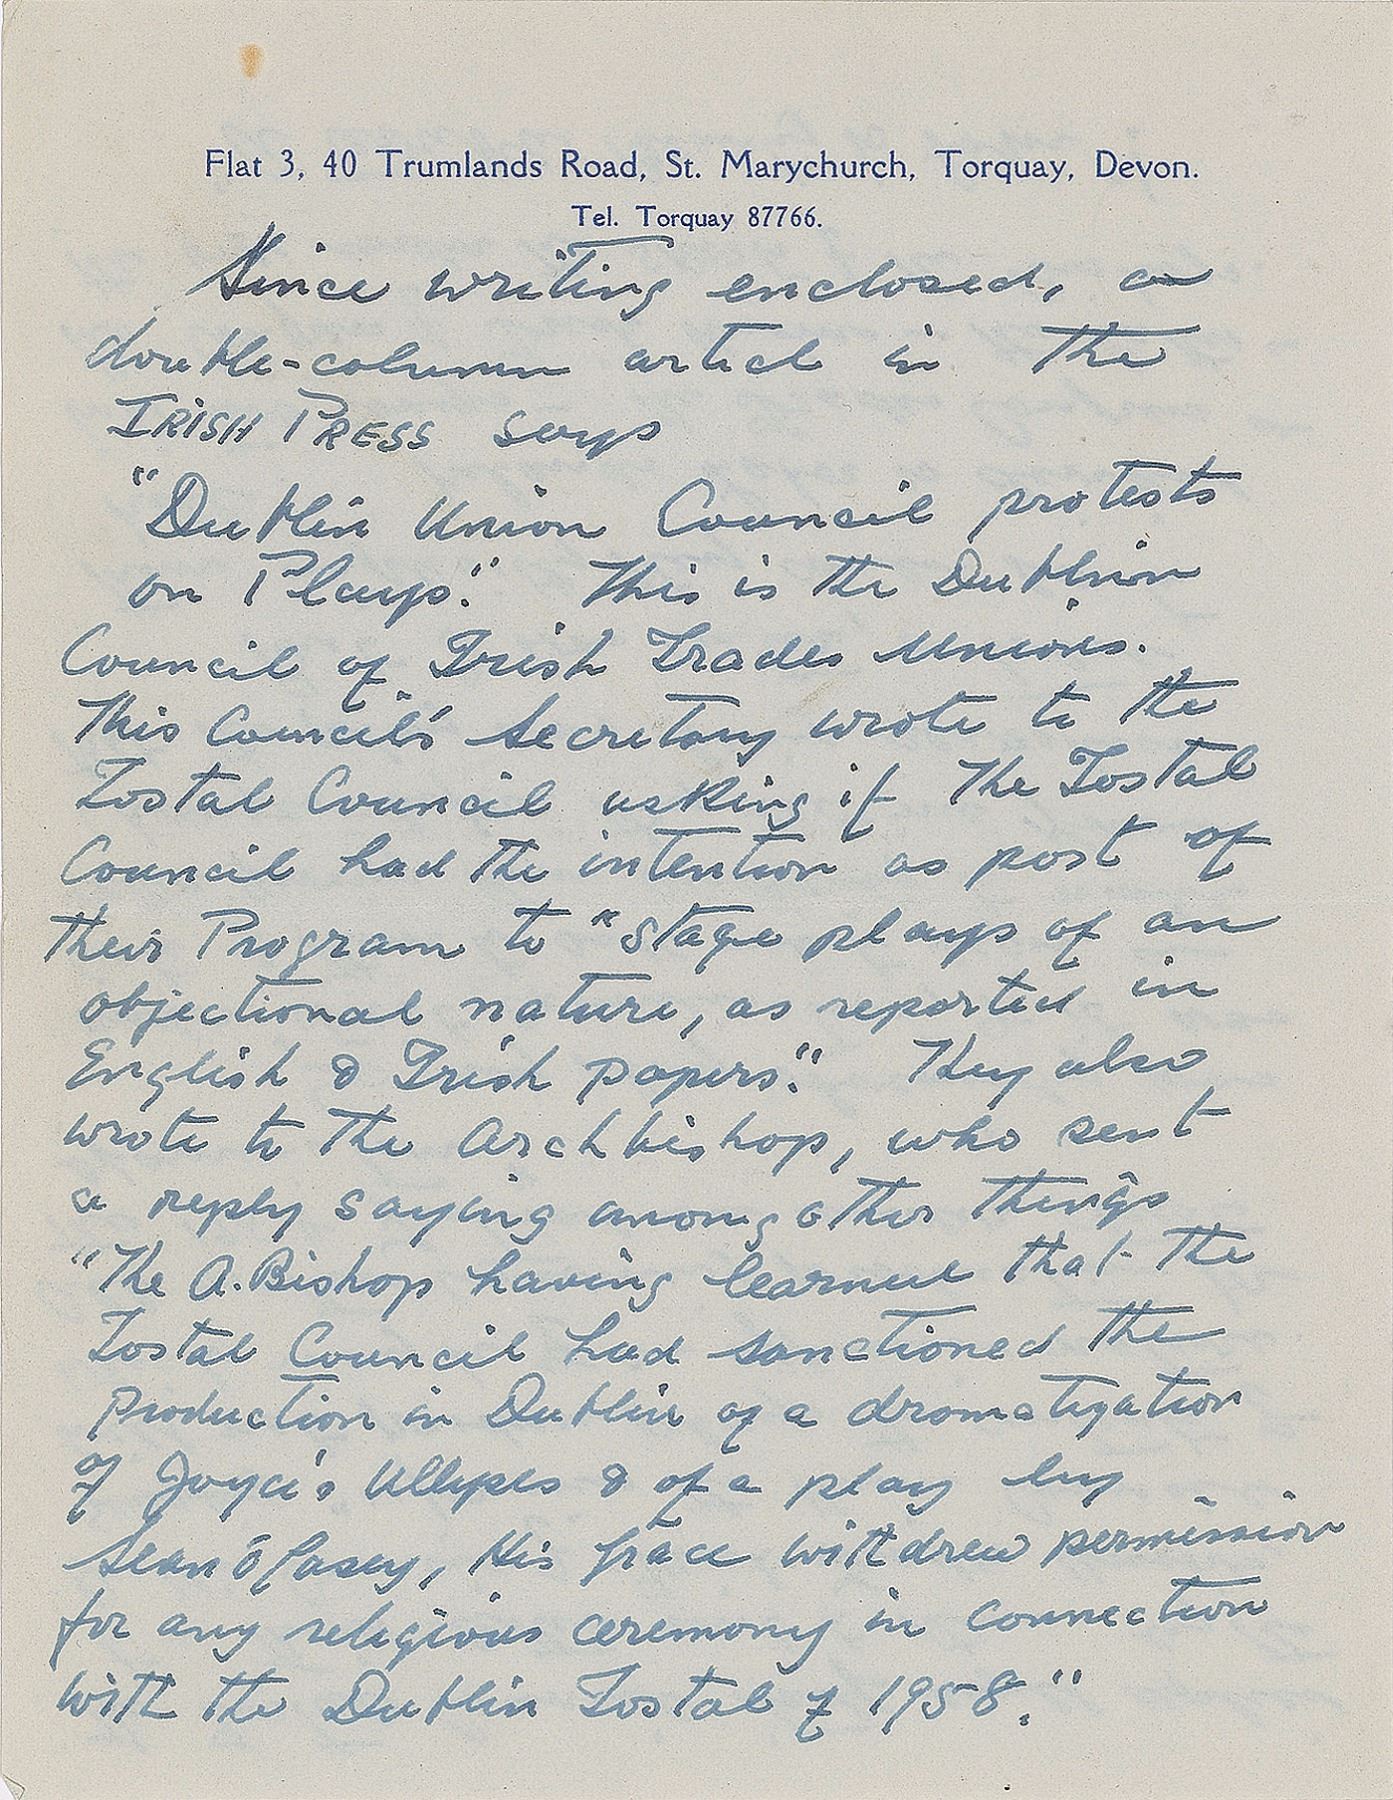 Flat 3, 40 Trumlands Road, St. Marychurch, Torquay, Devon.
Tel. Torquay 87766.
Since writing enclosed, a
double-column articl in the
IRISH PRESS says
"Dublin Union Council protests
on Plays." This is the Dublin
Council of Irish Trades Unions.
This Council's Secretary wrote to the
Tostal Council asking if The Tostal
Council had the intention as part of
their Program to "stage plays of an
objectional nature, as reported in
English & Irish papers." They also
wrote to the Archbishop, who sent
a reply saying among other things
"The A.Bishop having learned that the
Tostal Council had sanctioned the
production in Dublin of a dramatization
of Joyce's Ullyses & of a play by
Sean O'Casey, His Grace withdrew permission
for any religious ceremony in connection
with the Dublin Tostal of 1958."